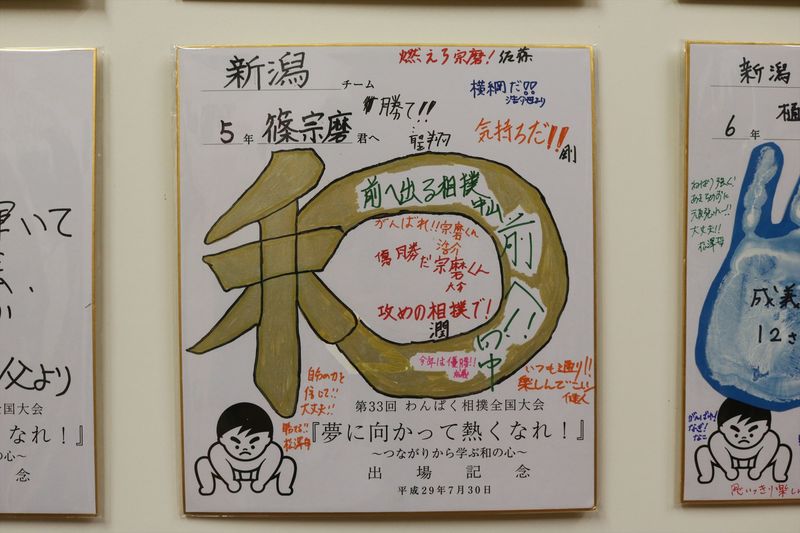 燃えろ宗磨! 佐藤
新潟 チーム
横綱だ!!
勝て!!
5年 篠宗磨 君へ
聖翔
気持ちだ!!
剛
和
前へ出る相撲
中山
前へ!!
田中
がんばれ!!宗磨くん
浩介
優勝だ宗磨くん
攻めの相撲で!
潤
今年は優勝!!
自分の力を
信じて!!
大丈夫!!
いつも通り!!
楽しんでこい
健人
松澤母
第33回 わんぱく相撲全国大会
『夢に向かって熱くなれ!』
~つながりから学ぶ和の心~
出場記念
平成29年7月30日
輝いて
父より
全国大会
なれ!』
の心~
念
新潟
6 年
大丈夫!!
松澤母
成義
12さ
がんばれ!